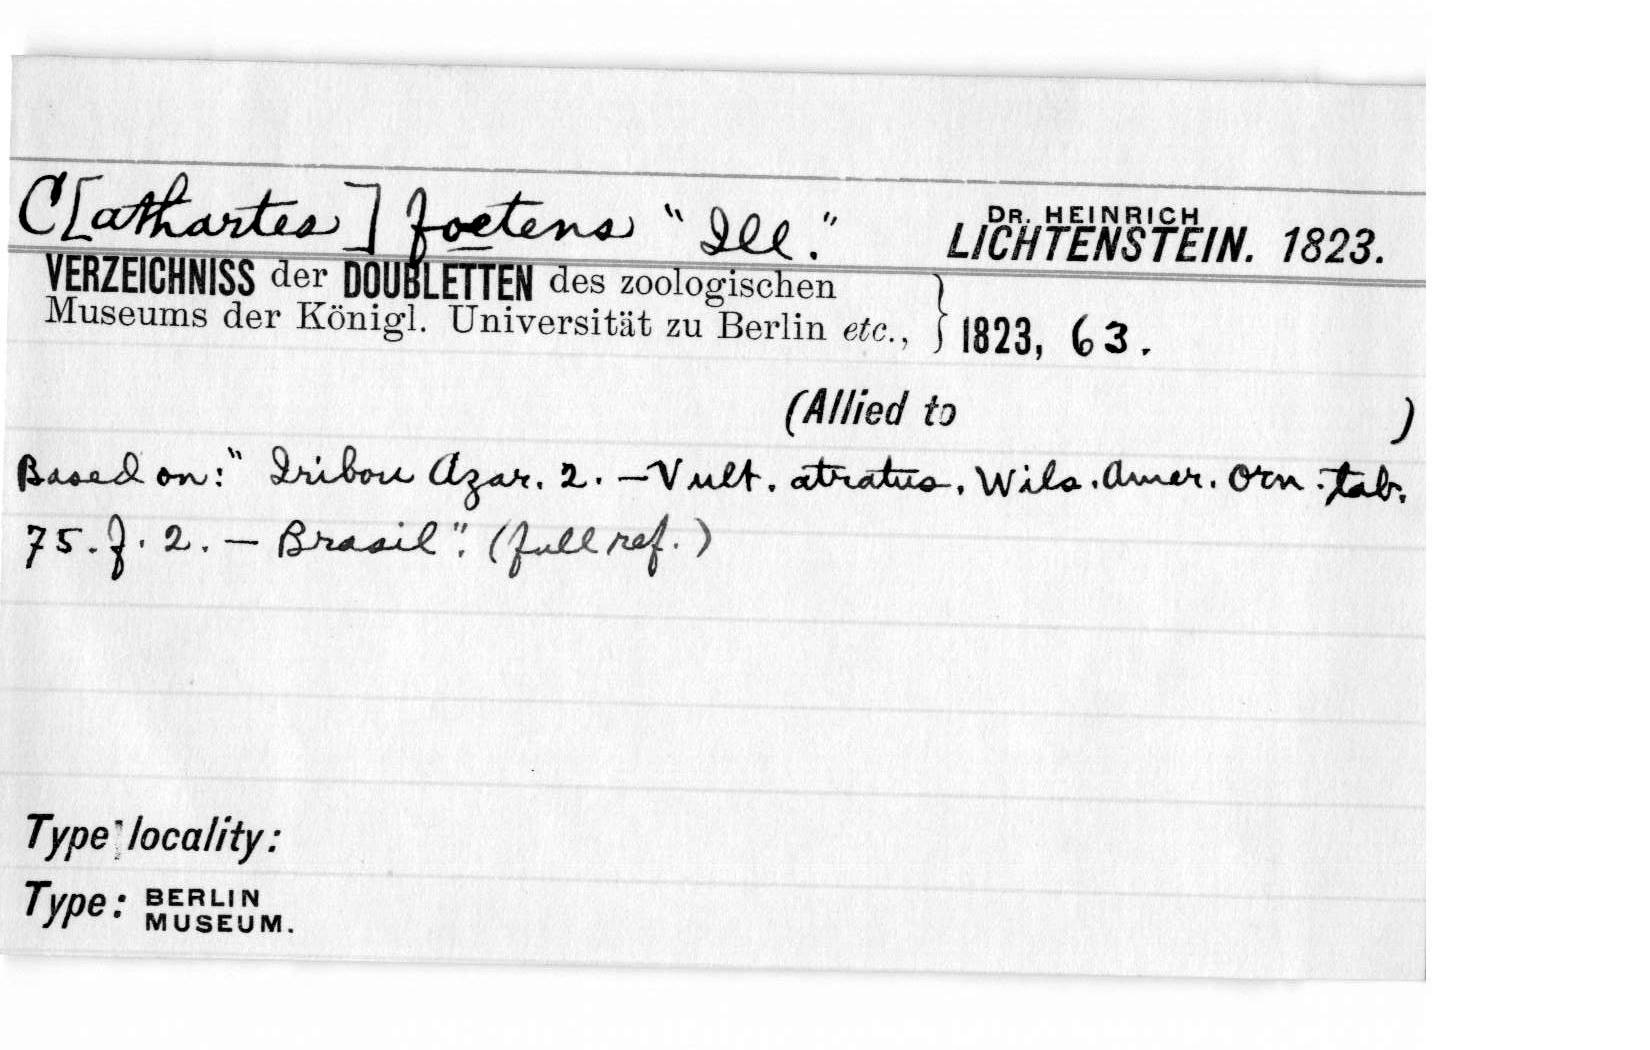 C[athartes] foetens "Ill."
DR. HEINRICH
LICHTENSTEIN. 1823.
VERZEICHNISS der DOUBLETTEN des zoologischen
Museums der Königl. Universität zu Berlin etc., } 1823, 63.
(Allied to )
Based on: "Iribou Azar. 2. — Vult. atratus. Wils. Amer. Orn. tab.
75. f. 2. — Brasil". (full ref.)
Type locality:
Type: BERLIN
MUSEUM.